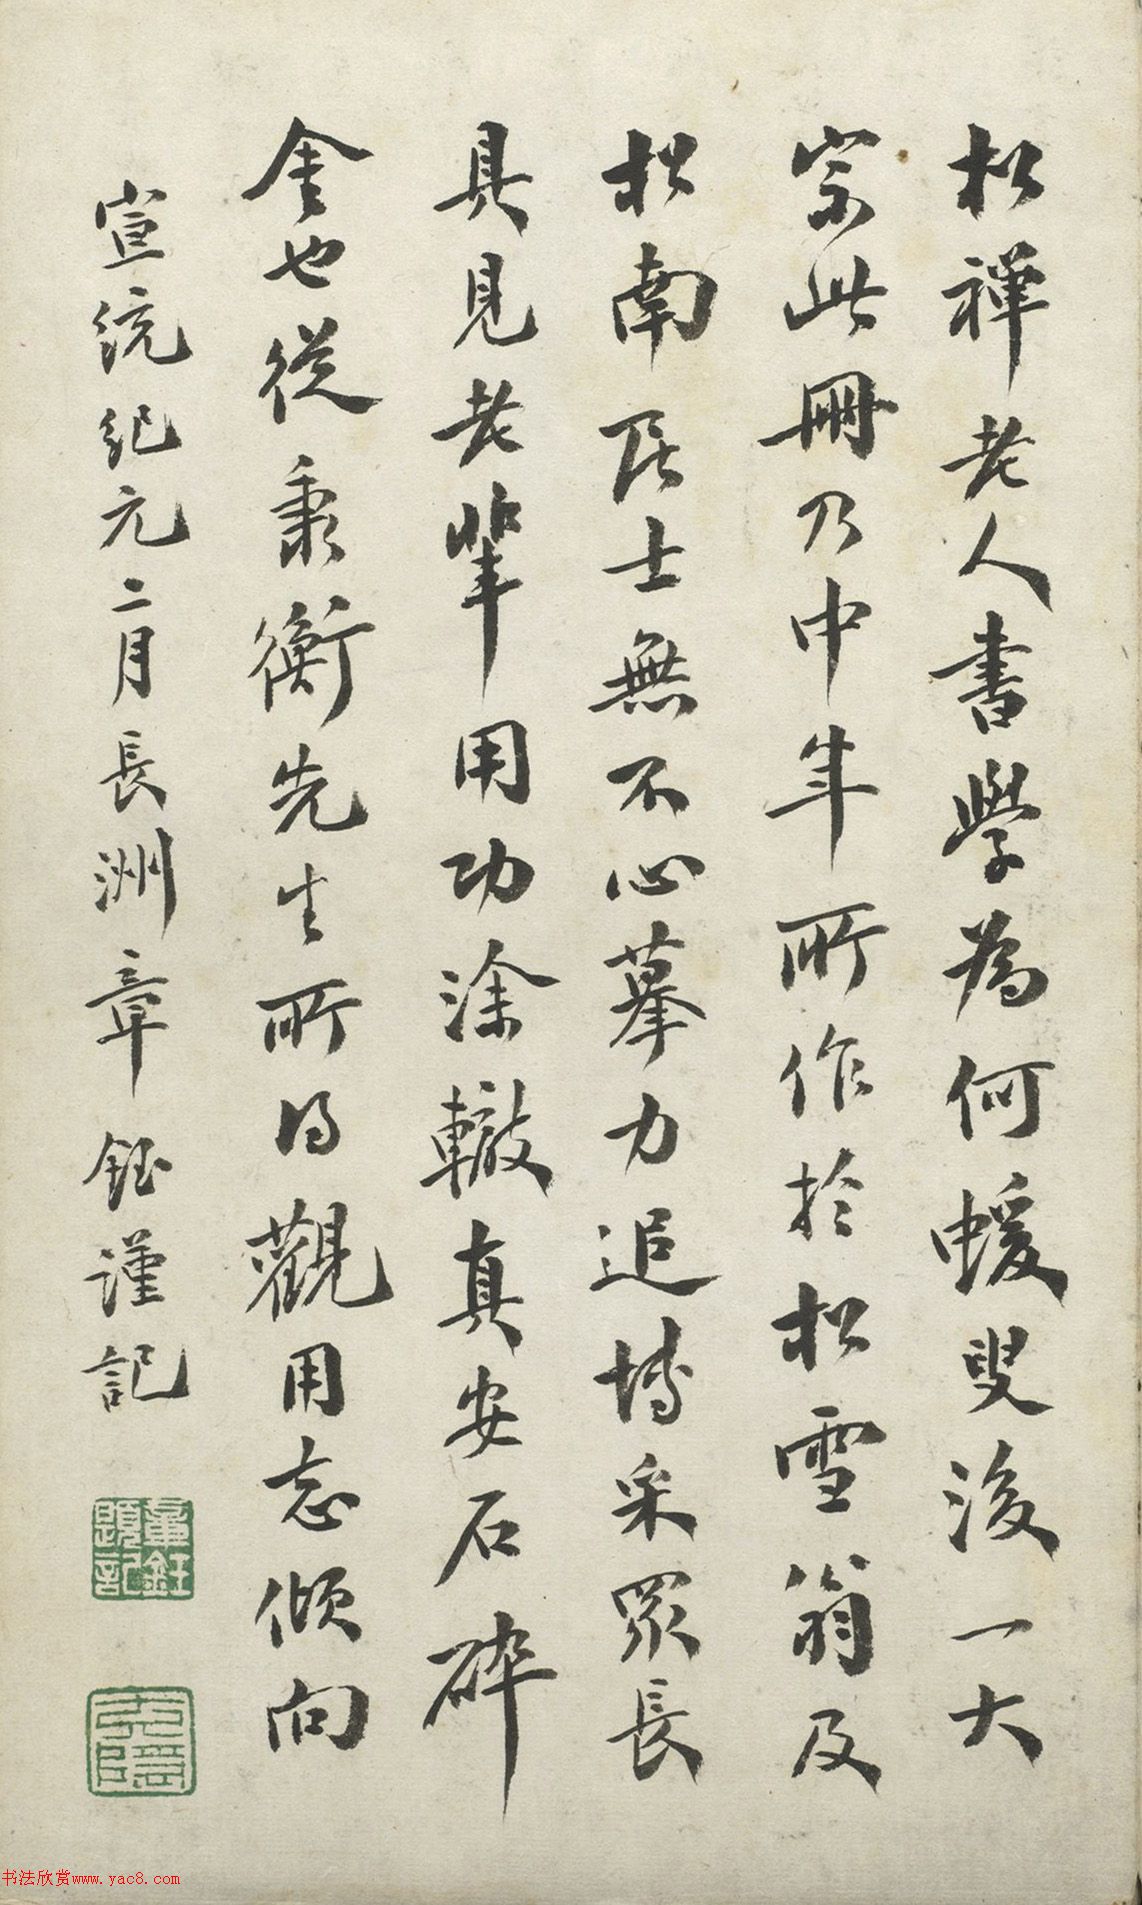 松禪老人書學為何蝯叟後一大
宗此冊乃中年所作於松雪翁及
松南居士無不心摹力追博采眾長
具見老輩用功涂轍真安石碎
金也從秉衡先生所得觀用志傾向
宣統紀元二月長洲章鈺謹記
章鈺題記
书法欣赏www.yac8.com